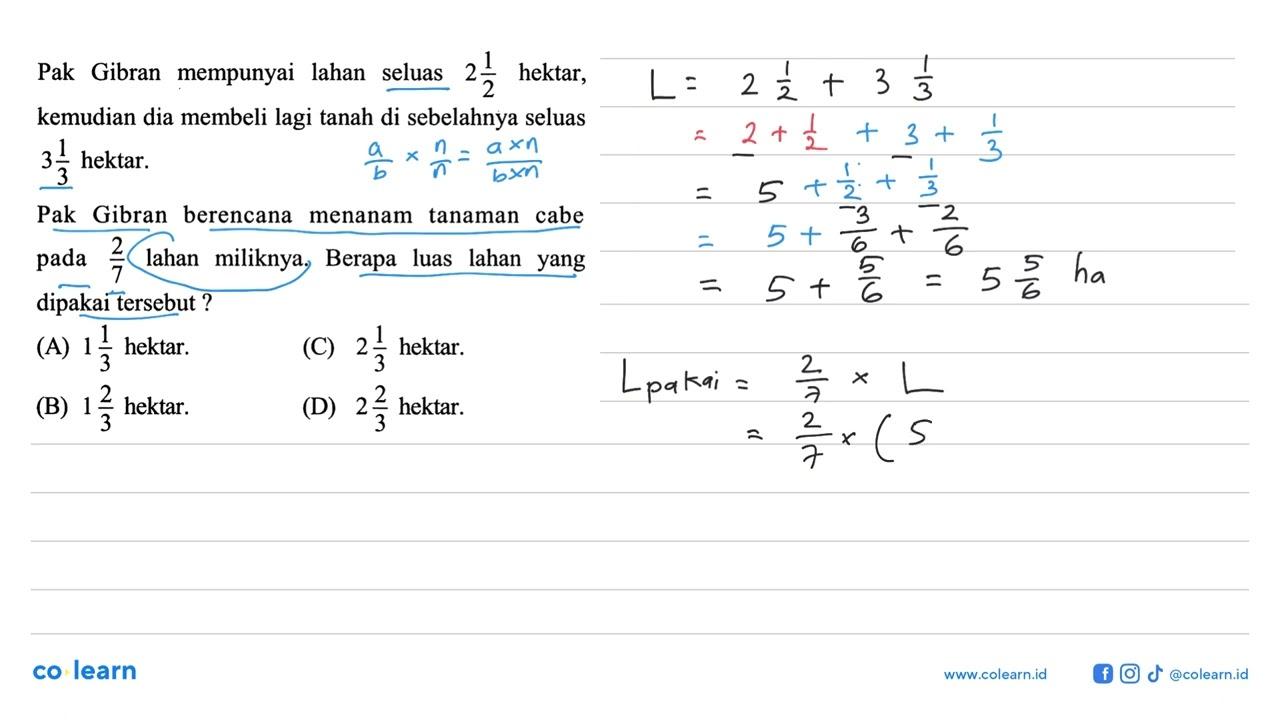 Pak Gibran mempunyai lahan seluas 2 1/2 hektar,
kemudian dia membeli lagi tanah di sebelahnya seluas
3 1/3 hektar.
a/b × n/n = a×n/b×n
Pak Gibran berencana menanam tanaman cabe
pada 2/7 lahan miliknya. Berapa luas lahan yang
dipakai tersebut ?
(A) 1 1/3 hektar. (C) 2 1/3 hektar.
(B) 1 2/3 hektar. (D) 2 2/3 hektar.
L = 2 1/2 + 3 1/3
= 2 + 1/2 + 3 + 1/3
= 5 + 1/2 + 1/3
= 5 + 3/6 + 2/6
= 5 + 5/6 = 5 5/6 ha
Lpakai = 2/7 × L
= 2/7 × ( 5
co learn
www.colearn.id @colearn.id